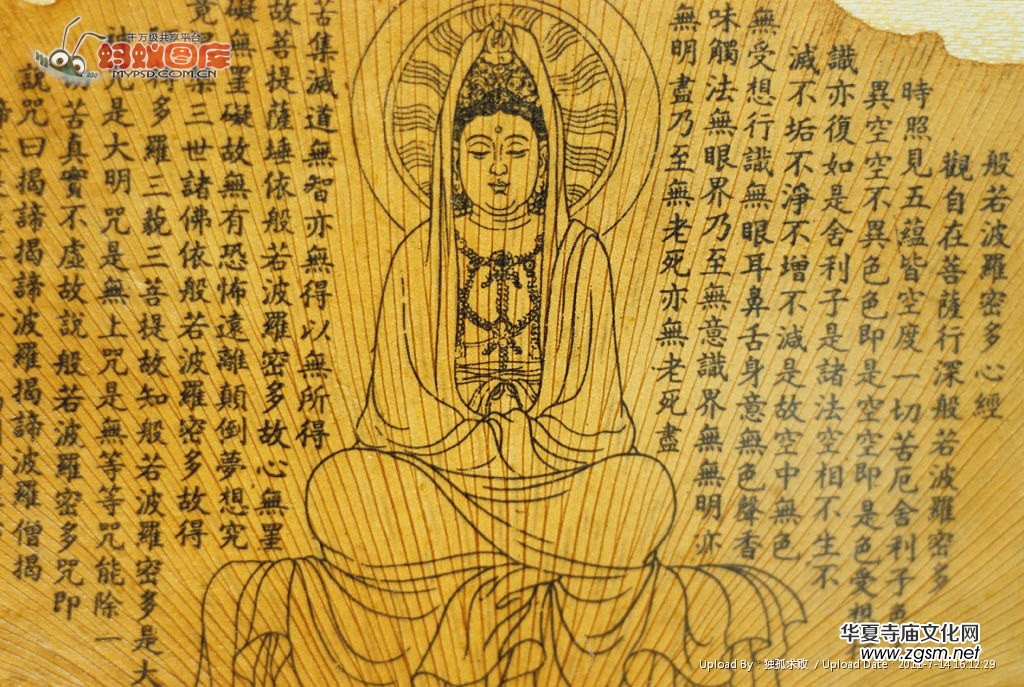 般若波羅密多心經
觀自在菩薩行深般若波羅密多
時照見五蘊皆空度一切苦厄舍利子
異空空不異色色即是空空即是色受想
識亦復如是舍利子是諸法空相不生不
滅不垢不淨不增不減是故空中無色
無受想行識無眼耳鼻舌身意無色聲香
味觸法無眼界乃至無意識界無無明亦
無明盡乃至無老死亦無老死盡
苦集滅道無智亦無得以無所得
故菩提薩埵依般若波羅密多故心無罣
礙無罣礙故無有恐怖遠離顛倒夢想究
竟槃三世諸佛依般若波羅密多故得
多羅三藐三菩提故知般若波羅密多是大
咒是大明咒是無上咒是無等等咒能除一
苦真實不虛故說般若波羅密多咒即
說咒曰揭諦揭諦波羅揭諦波羅僧揭
千万级共享平台
蚂蚁图库
MYPSD.COM.CN
华夏寺庙文化网
www.zgsm.net
Upload By : 独孤求败 / Upload Date : 2011-7-14 16:12:29